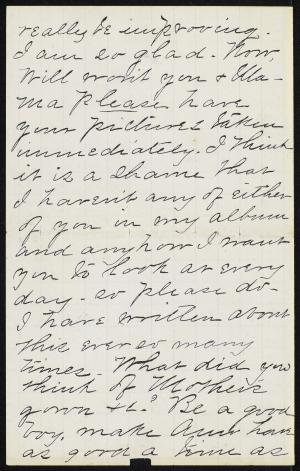 really be improving.
I am so glad. Now,
Will won't you & Ma-
ma please have
your pictures taken
immediately. I think
it is a shame that
I haven't any of either
of you in my album
and anyhow I want
you to look at every
day - so please do -
I have written about
this ever so many
times. What did you
think of Mother's
gown &c? Be a good
boy, make Aunt have
as good a time as